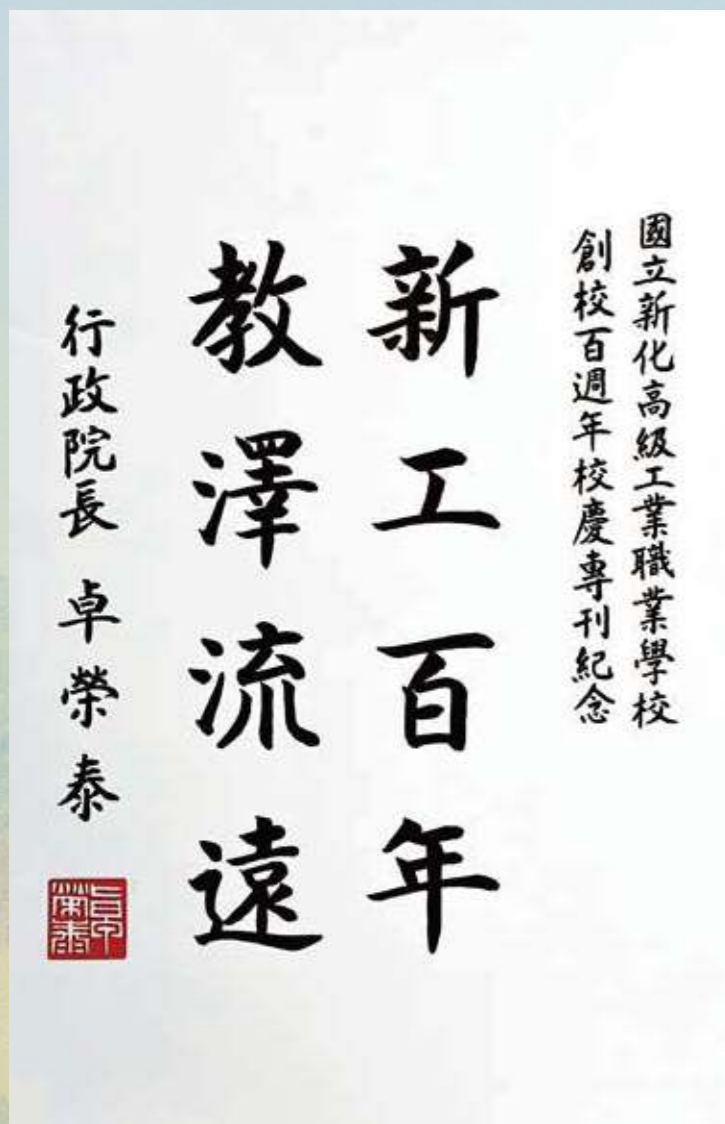 國立新化高級工業職業學校
創校百週年校慶專刊紀念
新工百年
教澤流遠
行政院長 卓榮泰
卓榮泰